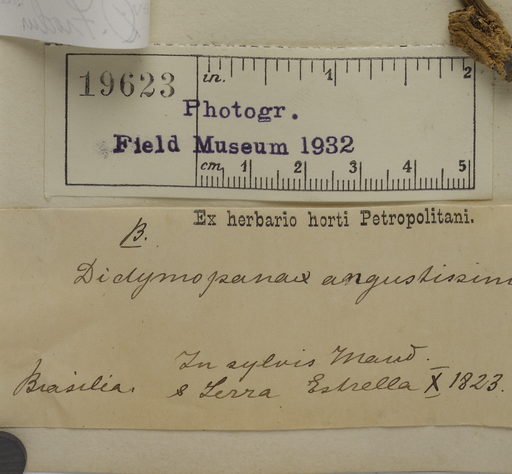 19623
in. 1 2
Photogr.
Field Museum 1932
cm 1 2 3 4 5
Ex herbario horti Petropolitani.
B.
Didymopanax angustissim
In sylvis Mand.
Brasilia. & Serra Estrella X 1823.